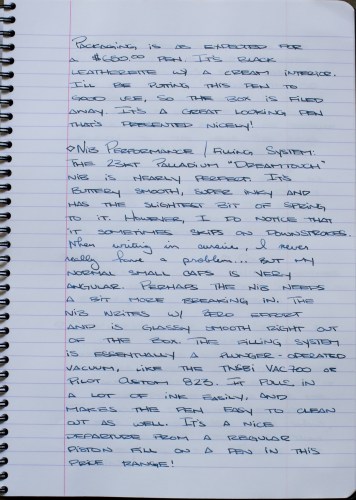 PACKAGING IS AS EXPECTED FOR
A $680.00 PEN. IT'S BLACK
LEATHERETTE W/ A CREAM INTERIOR.
I'LL BE PUTTING THIS PEN TO
GOOD USE, SO THE BOX IS FILED
AWAY. IT'S A GREAT LOOKING PEN
THAT'S PRESENTED NICELY!
◇NIB PERFORMANCE / FILLING SYSTEM:
THE 23KT PALLADIUM "DREAMTOUCH"
NIB IS NEARLY PERFECT. IT'S
BUTTERY SMOOTH, SUPER INKY AND
HAS THE SLIGHTEST BIT OF SPRING
TO IT. HOWEVER, I DO NOTICE THAT
IT SOMETIMES SKIPS ON DOWNSTROKES.
When writing in cursive, I never
really have a problem... BUT MY
NORMAL SMALL CAPS IS VERY
ANGULAR. PERHAPS THE NIB NEEDS
A BIT MORE BREAKING IN. THE
NIB WRITES W/ ZERO EFFORT
AND IS GLASSY SMOOTH RIGHT OUT
OF THE BOX. THE FILLING SYSTEM
IS ESSENTIALLY A PLUNGER-OPERATED
VACUUM, LIKE THE TWSBI VAC 700 OR
PILOT CUSTOM 823. IT PULLS IN
A LOT OF INK EASILY, AND
MAKES THE PEN EASY TO CLEAN
OUT AS WELL. IT'S A NICE
DEPARTURE FROM A REGULAR
PISTON FILL ON A PEN IN THIS
PRICE RANGE!